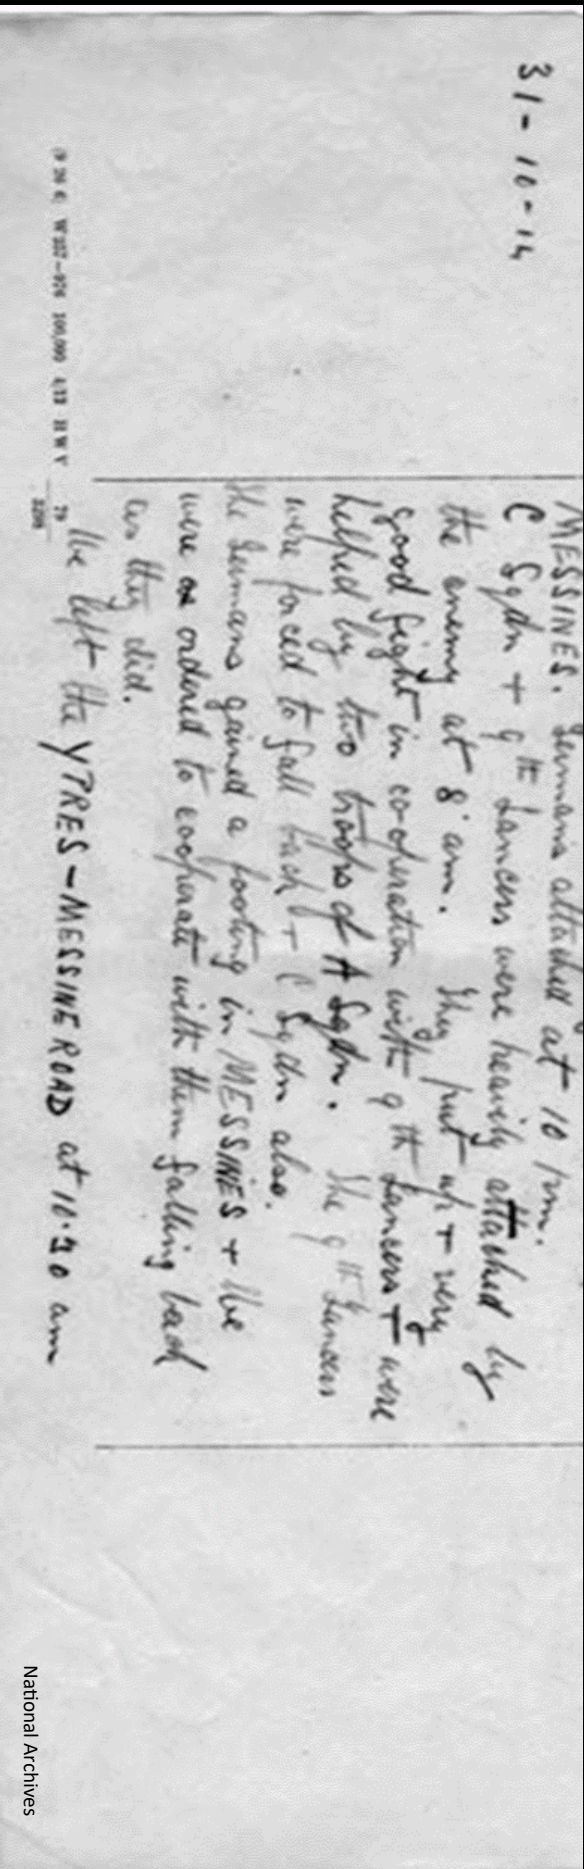 31-10-14
MESSINES. Germans attacked at 10 pm.
C Sqdn + 9th Lancers were heavily attacked by
the enemy at 8 am. They put up + very
good fight in cooperation with 9th Lancers + were
helped by two troops of A Sqdn. The 9th Lancers
were forced to fall back + C Sqdn also.
The Germans gained a footing in MESSINES + We
were ordered to cooperate with them falling back
as they did.
We left the YPRES-MESSINE ROAD at 10.30 am
(9 26 6) W 257-976 100,000 4/12 H W V 79/3298
National Archives